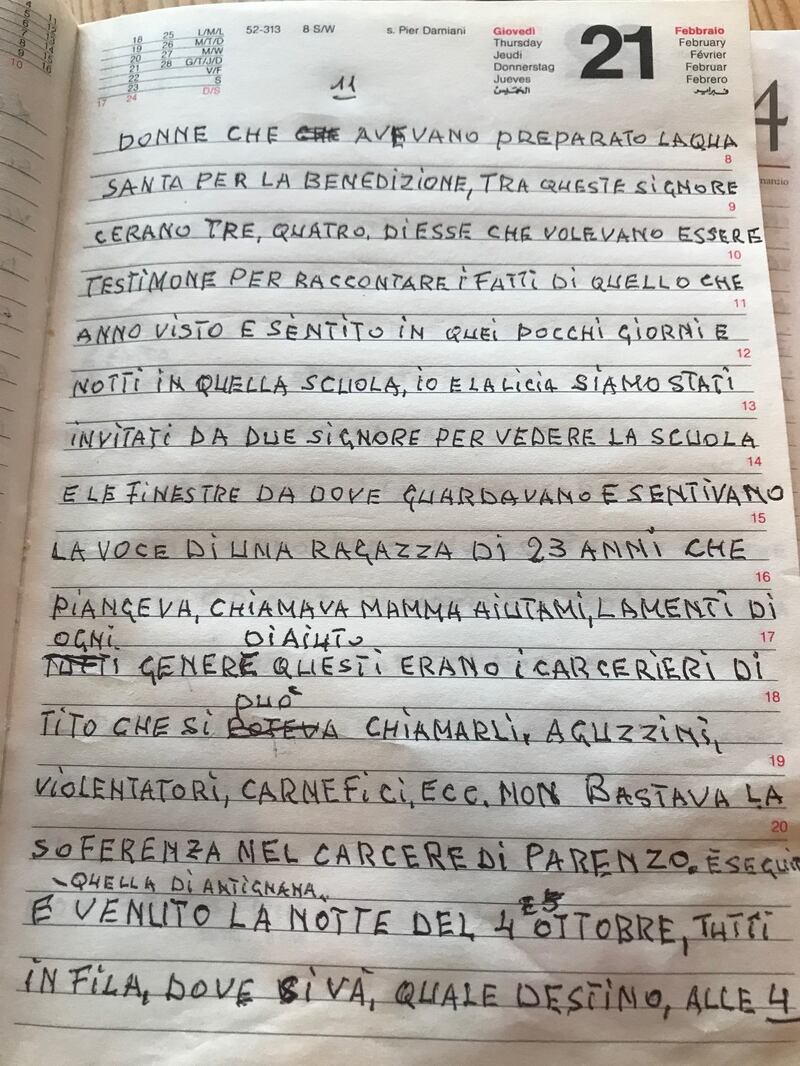 52-313 8 S/W s. Pier Damiani
Giovedì
Thursday
Jeudi
Donnerstag
Jueves
الخميس
21
Febbraio
February
Février
Februar
Febrero
فبراير
18 25 L/M/L
19 26 M/T/D
20 27 M/W
21 28 G/T/J/D
22 V/F
23 S
17 24 D/S
11
DONNE CHE CHE AVEVANO PREPARATO LAQUA
8
SANTA PER LA BENEDIZIONE, TRA QUESTE SIGNORE
9
CERANO TRE, QUATRO, DI ESSE CHE VOLEVANO ESSERE
10
TESTIMONE PER RACCONTARE I FATTI DI QUELLO CHE
11
ANNO VISTO E SENTITO IN QUEI POCCHI GIORNI E
12
NOTTI IN QUELLA SCUOLA, IO E LA LICIA SIAMO STATI
13
INVITATI DA DUE SIGNORE PER VEDERE LA SCUOLA
14
E LE FINESTRE DA DOVE GUARDAVANO E SENTIVANO
15
LA VOCE DI UNA RAGAZZA DI 23 ANNI CHE
16
PIANGEVA, CHIAMAVA MAMMA AIUTAMI, LAMENTI DI
17
OGNI DI AIUTO
TUTTI GENERE QUESTI ERANO I CARCERIERI DI
18
PUO'
TITO CHE SI POTEVA CHIAMARLI, AGUZZINI,
19
VIOLENTATORI, CARNEFICI, ECC. NON BASTAVA LA
20
SOFERENZA NEL CARCERE DI PARENZO. E SEGUIT
QUELLA DI ANTIGNANA.
E VENUTO LA NOTTE DEL 4 E 5 OTTOBRE, TUTTI
IN FILA, DOVE SI VÀ, QUALE DESTINO, ALLE 4
4